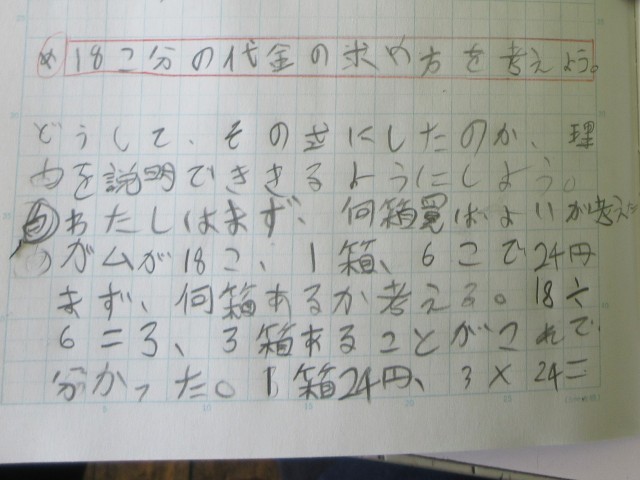 め 18こ分の代金の求め方を考えよう。
どうして、その式にしたのか、理
由を説明でききるようにしよう。
自わたしはまず、何箱買ばよいか考えた
ガムが18こ、1箱、6こで24円
まず、何箱あるか考える。18÷
6=3、3箱あることがこれで
分かった。1箱24円、3×24=